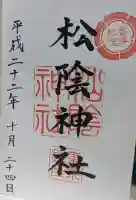 松陰神社
平成二十二年 十月 二十四日